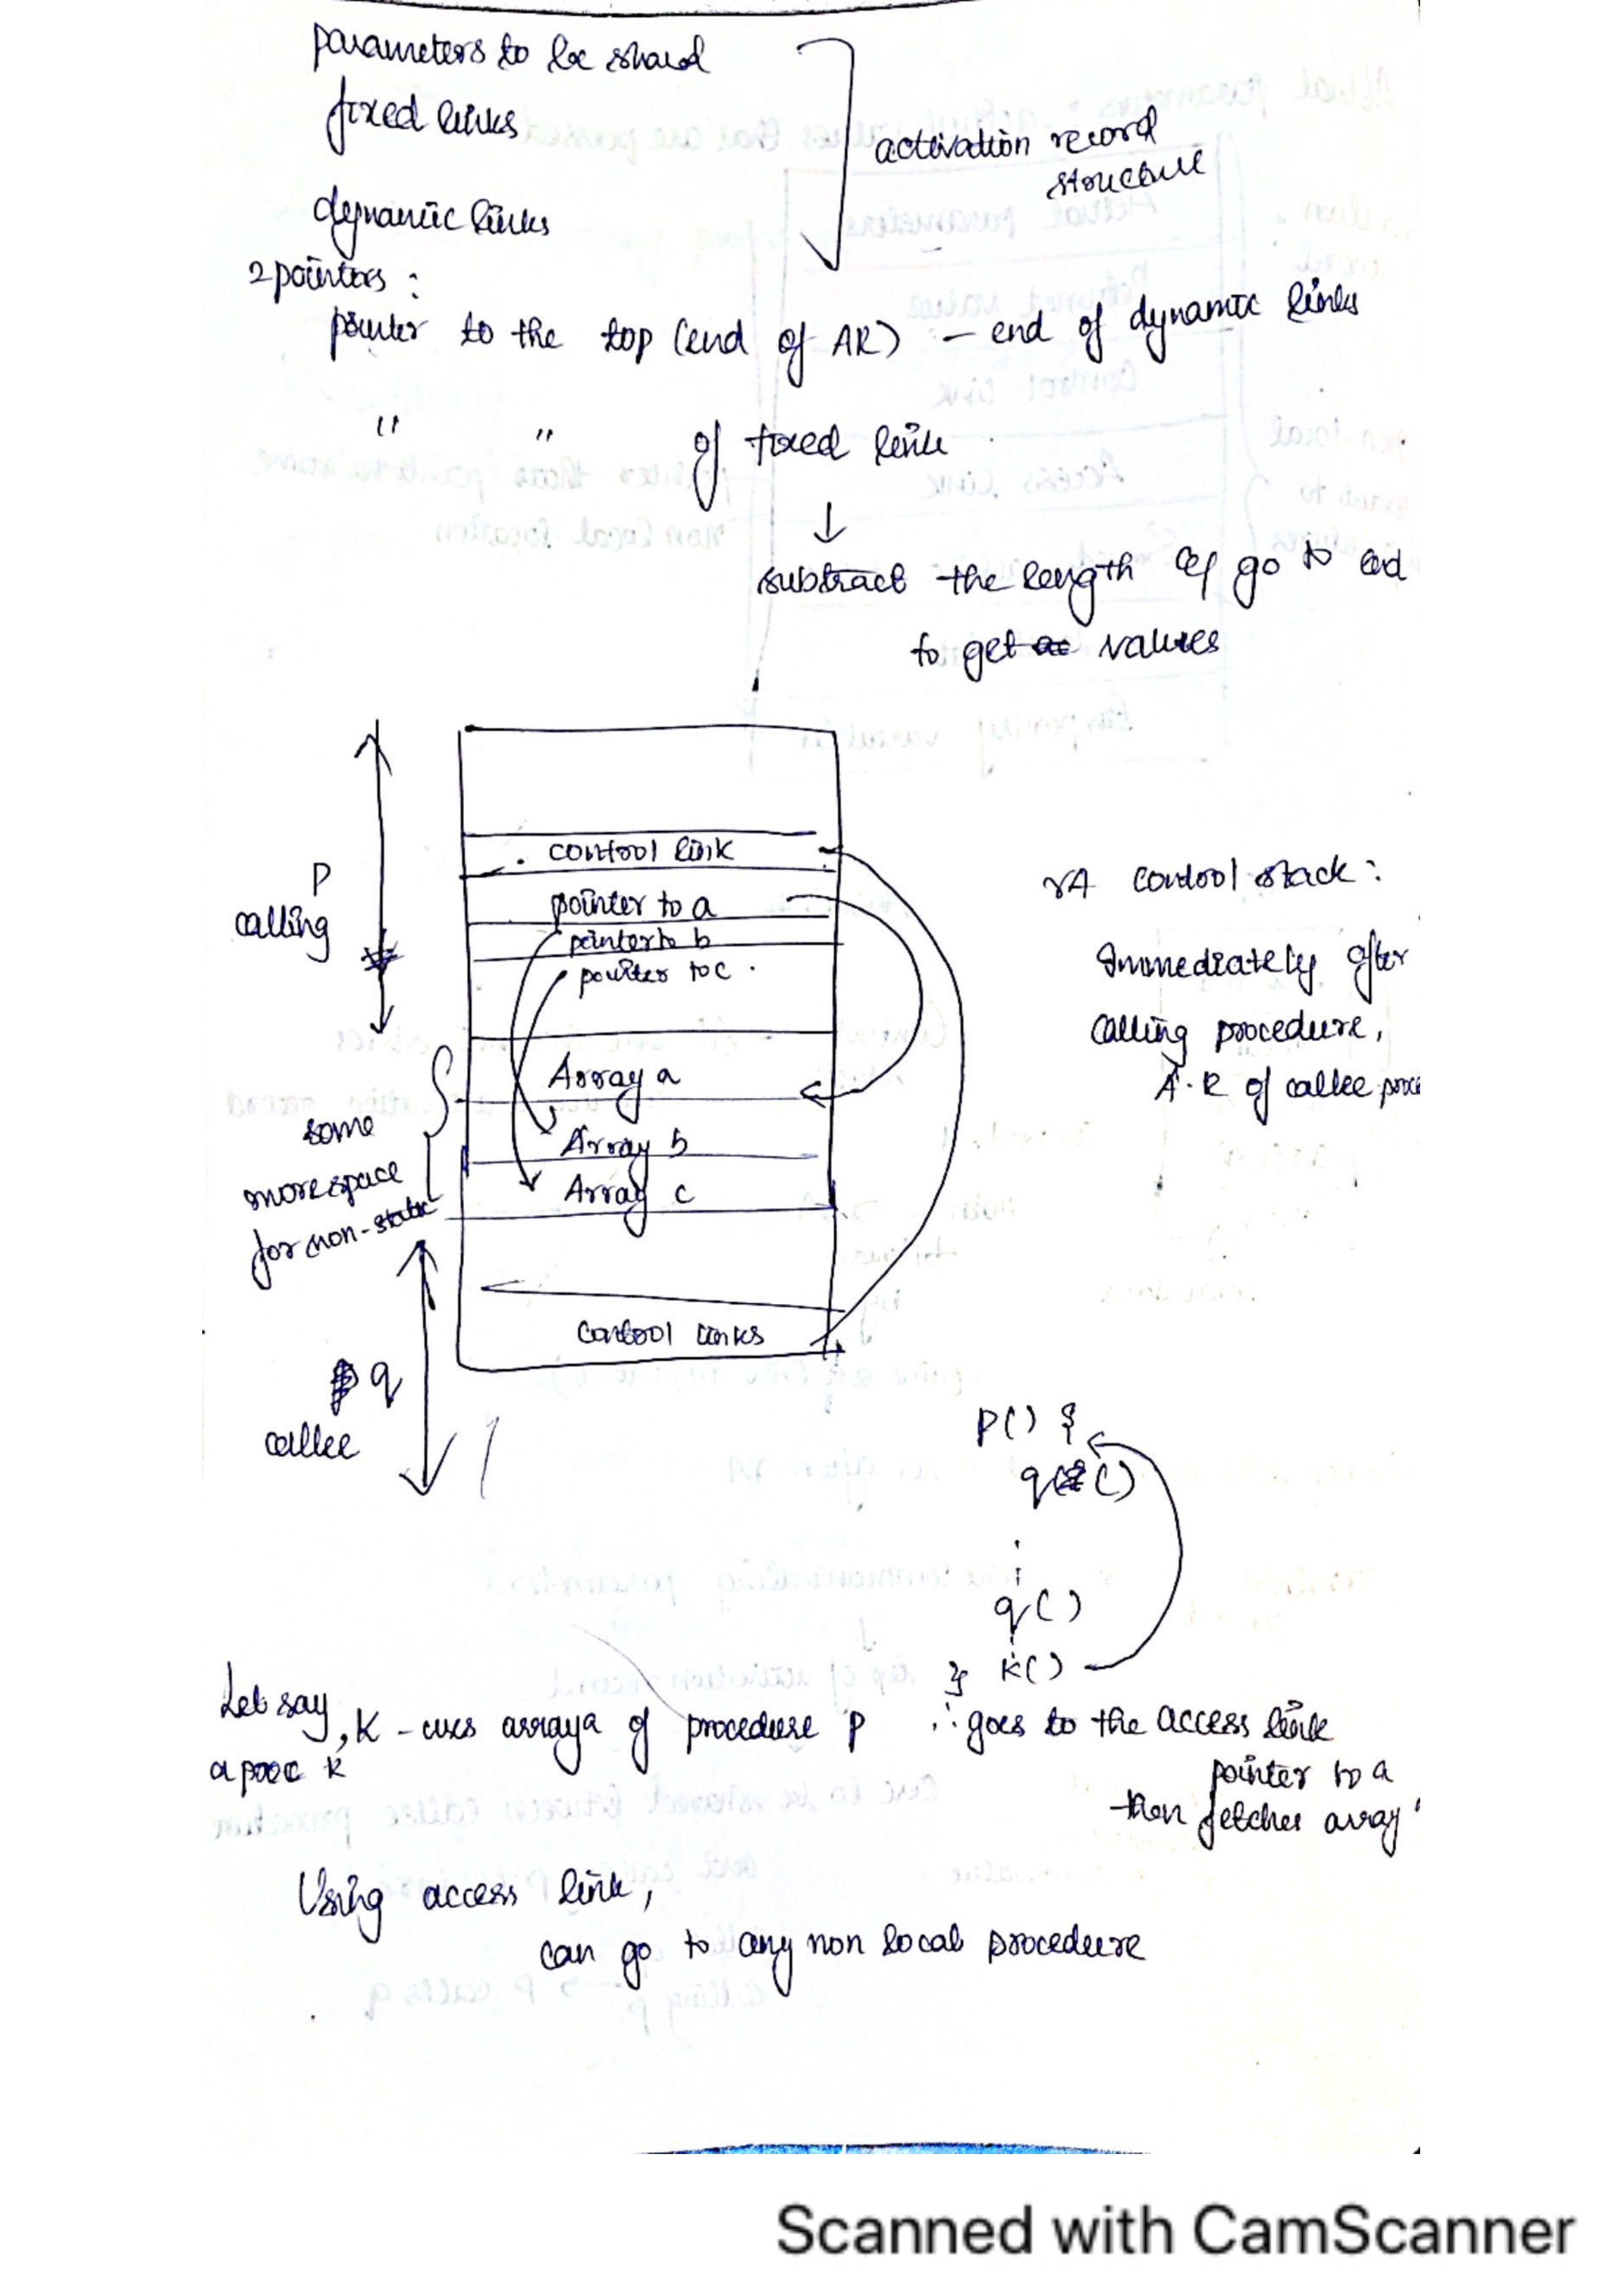 parameters to be shared
fixed links
activation record
structure
dynamic links
2 pointers :
pointer to the top (end of AR) - end of dynamic links
" " of fixed link
↓
subtract the length & go to end
to get values
control link
pointer to a
pointer to b
pointer to c
P
calling
Array a
Array b
Array c
some
more space
for non-static
control links
q
callee
control stack :
Immediately after
calling procedure,
A.R of callee proce
P() {
q()
q()
} k()
Let say, K - uses array a of procedure P ∴ goes to the access link
a proc k
pointer to a
then fetches array
Using access link,
can go to any non local procedure
Scanned with CamScanner